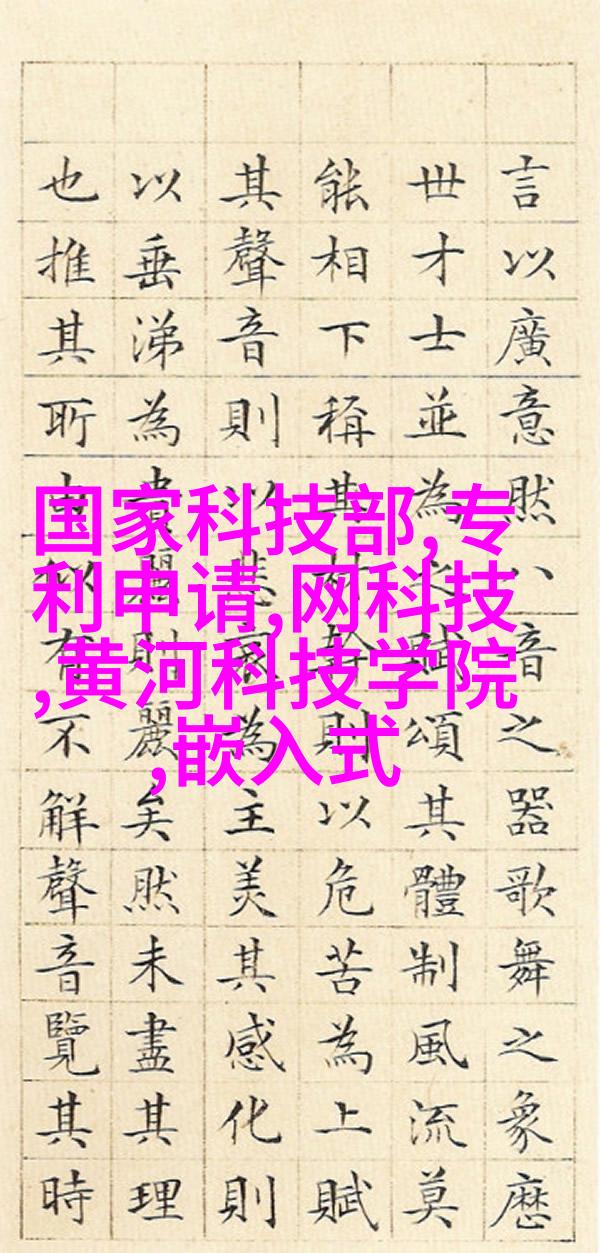 言以廣意然八音之器歌舞之象歷
世才士並為之賦頌其體制風流莫
能相下稱其材幹則以危苦為上賦
其聲音則以悲哀為主美其感化則
以垂涕為貴麗則麗矣然未盡其理
也推其所由似有不解聲音覽其時
国家科技部,专
利申请,网科技
,黄河科技学院
,嵌入式